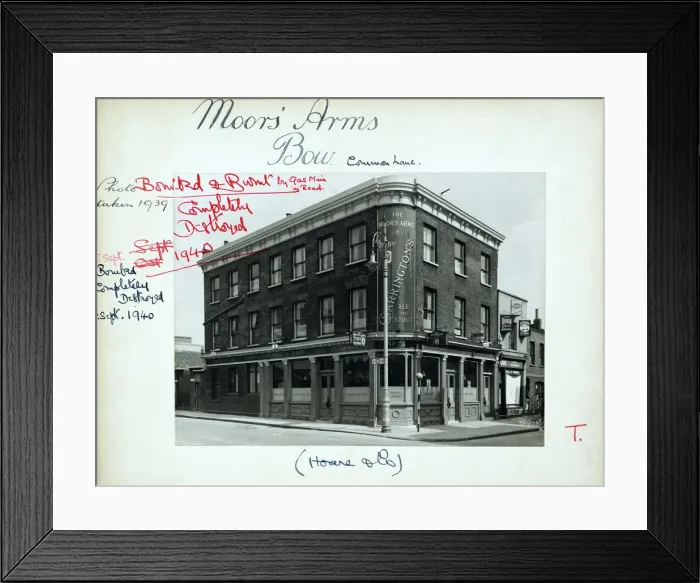 Moors' Arms
Bow.
Common Lane.
Photo
taken 1939
Bombed & Burnt by Gas Main
in Road.
Completely
Destroyed
Sept
Oct 1940
Sept.
Bombed
Completely
Destroyed
Sept. 1940
THE
MOOR'S ARMS
CHARRINGTON'S
ALE
AND
STOUT
(Hoare & Co)
T.